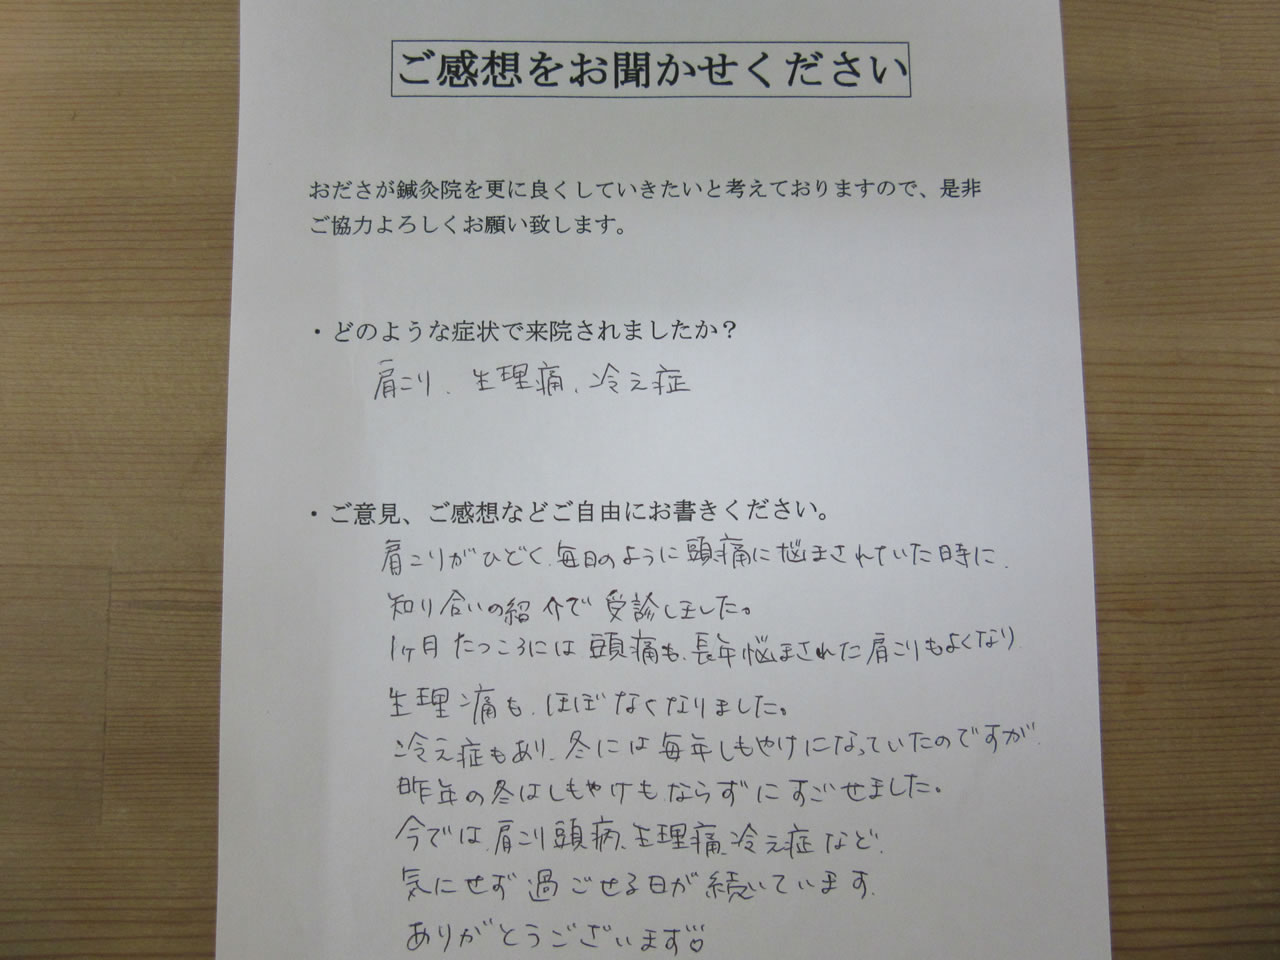 ご感想をお聞かせください
おださが鍼灸院を更に良くしていきたいと考えておりますので、是非
ご協力よろしくお願い致します。
・どのような症状で来院されましたか？
肩こり、生理痛、冷え症
・ご意見、ご感想などご自由にお書きください。
肩こりがひどく、毎日のように頭痛に悩まされていた時に、
知り合いの紹介で受診しました。
1ヶ月たつころには、頭痛も、長年悩まされた肩こりもよくなり
生理痛も、ほぼなくなりました。
冷え症もあり、冬には毎年しもやけになっていたのですが、
昨年の冬はしもやけもならずにすごせました。
今では、肩こり、頭病、生理痛、冷え症など、
気にせず過ごせる日が続いています。
ありがとうございます♡